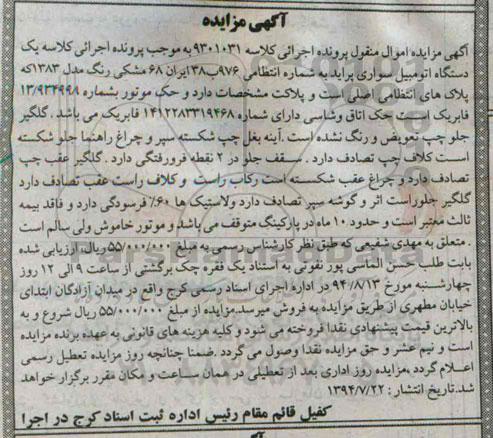 آگهی مزایده
آگهی مزایده اموال منقول پرونده اجرائی کلاسه ۹۳۰۱۰۳۱ به موجب پرونده اجرائی کلاسه یک
دستگاه اتومبیل سواری پراید به شماره انتظامی ۹۷۶ب۳۸ ایران ۶۸ مشکی رنگ مدل ۱۳۸۳که
پلاک های انتظامی اصلی است و پلاکت مشخصات دارد و حک موتور بشماره ۱۲/۹۳۴۹۹۸
فابریک است حک اتاق وشاسی دارای شماره ۱۴۱۲۲۸۳۳۱۹۴۶۸ فابریک می باشد . گلگیر
جلو چپ تعویض و رنگ نشده است .آینه بغل چپ شکسته سپر و چراغ راهنما جلو شکسته
است کلاف چپ تصادف دارد . سقف جلو در ۲ نقطه فرورفتگی دارد . گلگیر عقب چپ
تصادف دارد و چراغ عقب شکسته است رکاب راست و کلاف راست عقب تصادف دارد
گلگیر جلوراست اثر و گوشه سپر تصادف دارد ولاستیک ها ۶۰٪ فرسودگی دارد و فاقد بیمه
ثالث معتبر است و حدود ۱۰ ماه در پارکینگ متوقف می باشد و موتور خاموش ولی سالم است
. متعلق به مهدی شفیعی که طبق نظر کارشناس رسمی به مبلغ ۵۵/۰۰۰/۰۰۰ ریال، ارزیابی شده
بابت طلب حسن الماسی پور نفوتی به استناد یک فقره چک برگشتی از ساعت ۹ الی ۱۲ روز
چهارشنبه مورخ ۹۴/۸/۱۳ در اداره اجرای اسناد رسمی کرج واقع در میدان آزادگان ابتدای
خیابان مطهری از طریق مزایده به فروش میرسد.مزایده از مبلغ ۵۵/۰۰۰/۰۰۰ ریال شروع و به
بالاترین قیمت پیشنهادی نقدا فروخته می شود و کلیه هزینه های قانونی به عهده برنده مزایده
است و نیم عشر و حق مزایده نقدا وصول می گردد .ضمنا چنانچه روز مزایده تعطیل رسمی
اعلام گردد ،مزایده روز اداری بعد از تعطیلی در همان ساعت و مکان مقرر برگزار خواهد
شد.تاریخ انتشار : ۱۳۹۴/۷/۲۲
کفیل قائم مقام رئیس اداره ثبت اسناد کرج در اجرا